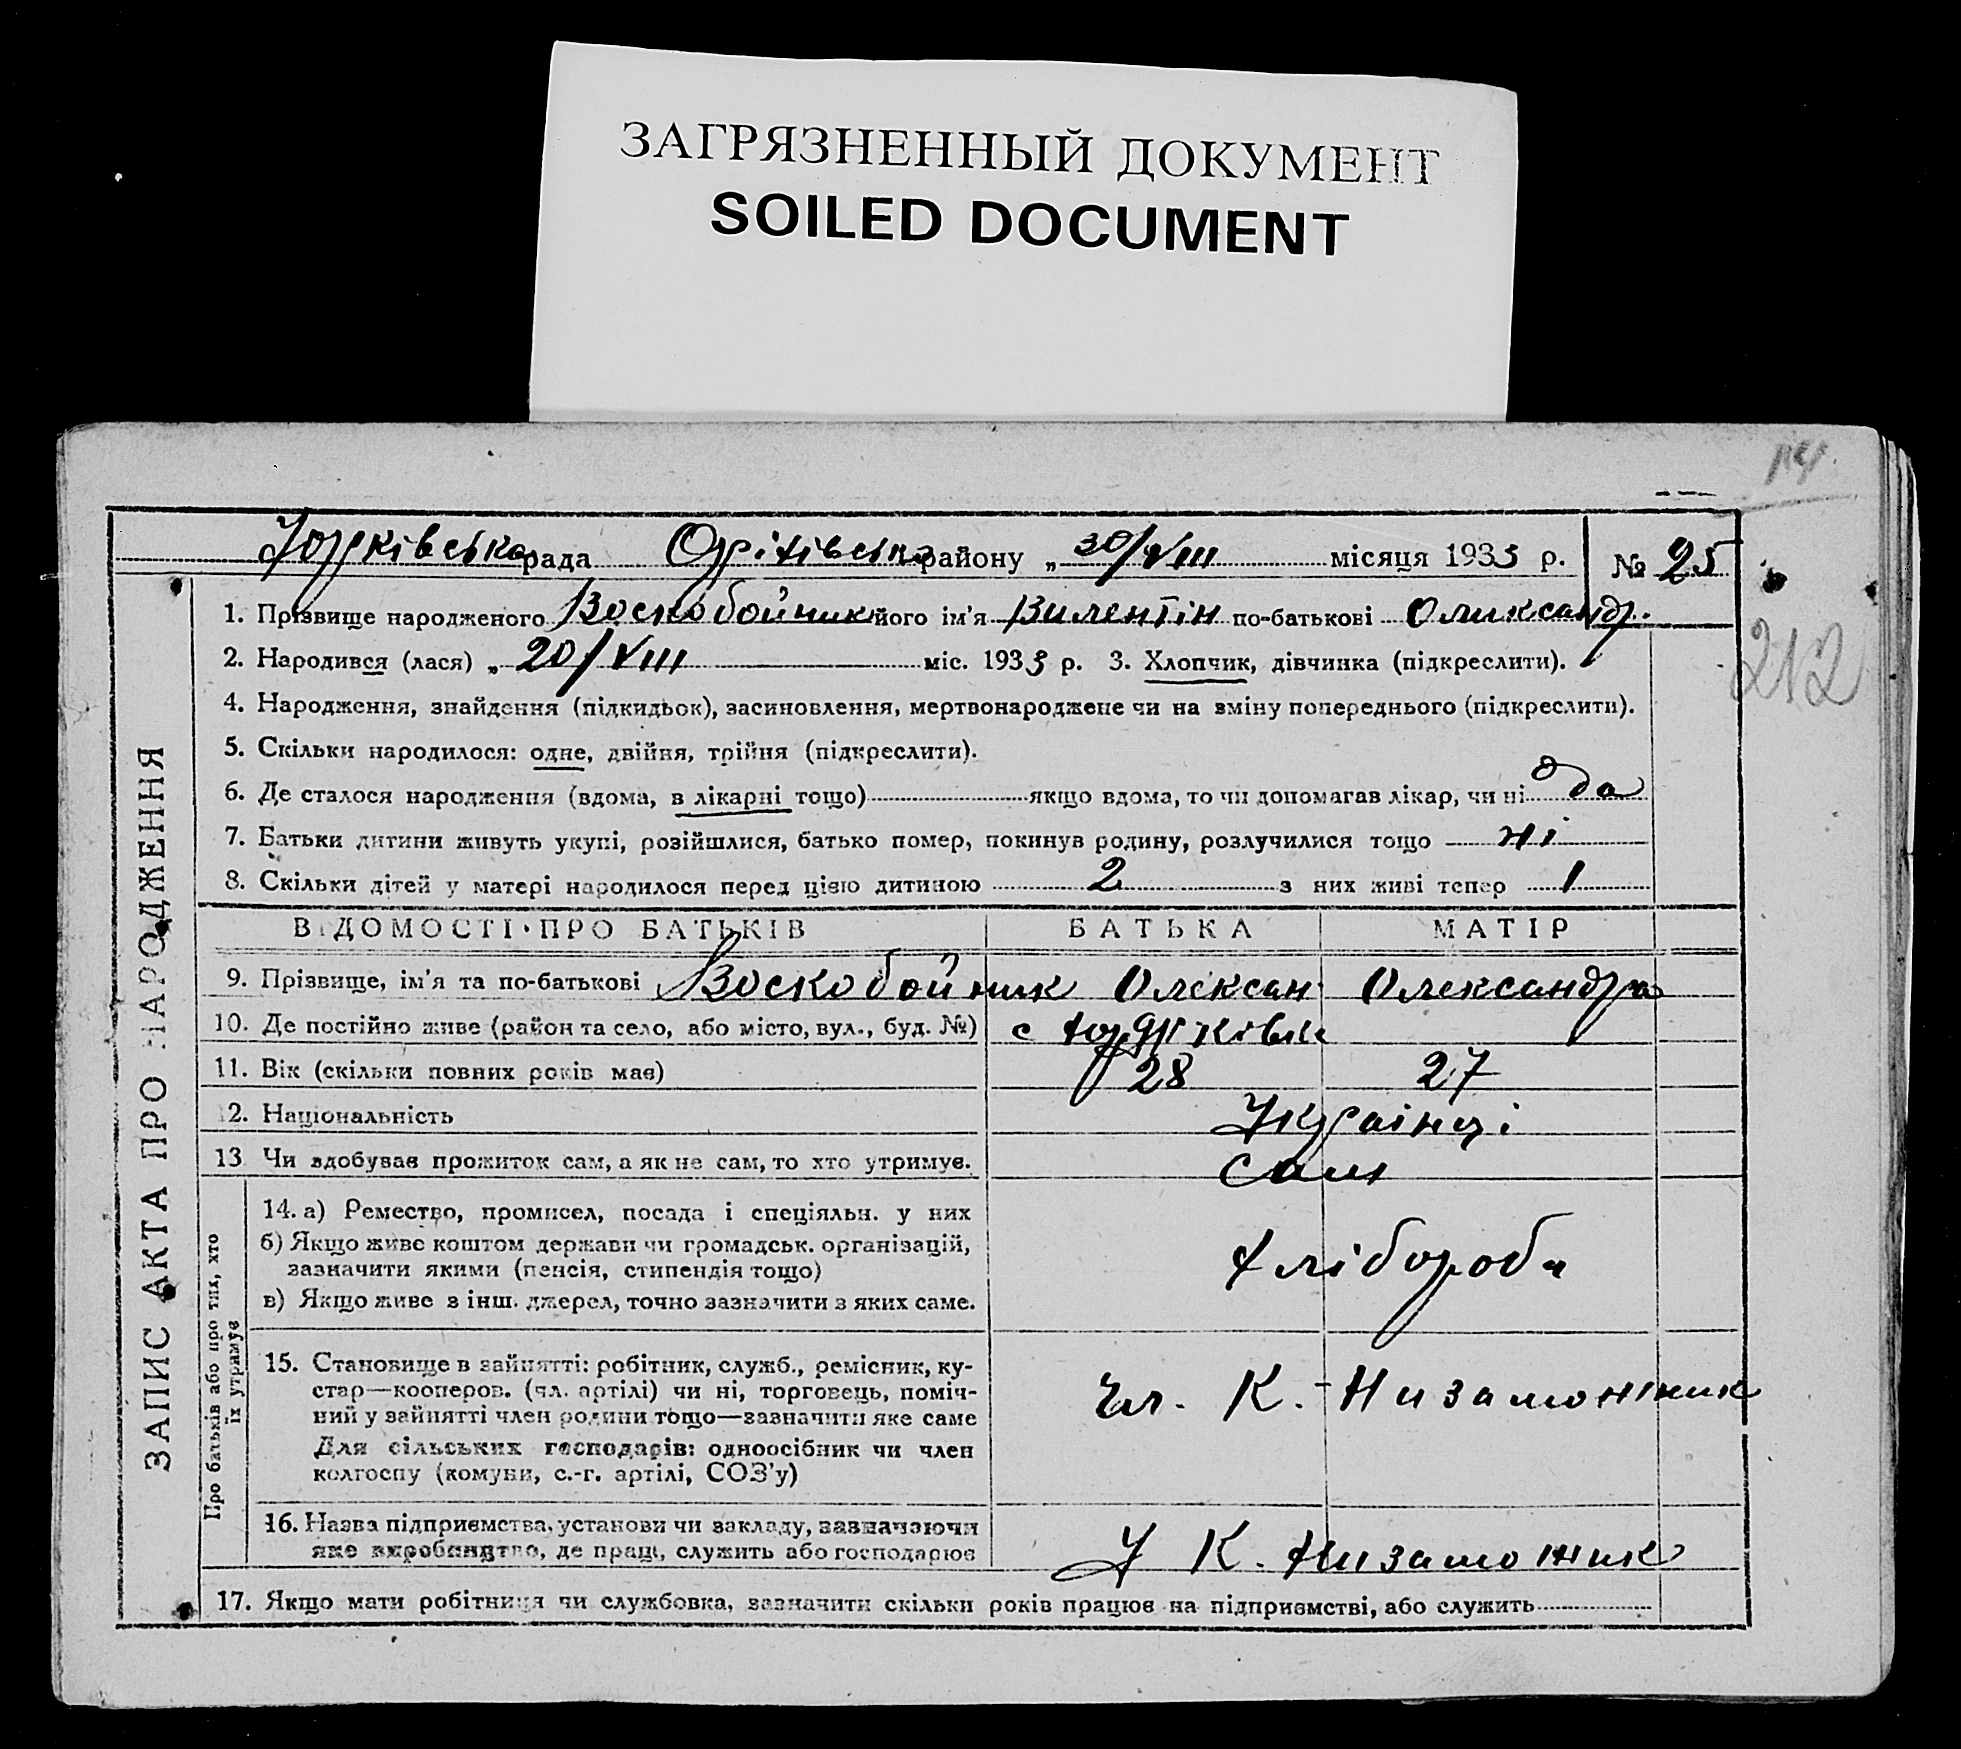 ЗАГРЯЗНЕННЫЙ ДОКУМЕНТ
SOILED DOCUMENT
рада Оріхівська району „30/VIII місяця 1933 р. № 25
1. Прізвище народженого Воскобойник його ім'я Вилентін по-батькові Олександр.
2. Народився (лася) „ 20/VIII міс. 1933 р. 3. Хлопчик, дівчинка (підкреслити).
212
4. Народження, знайдення (підкидьок), засиновлення, мертвонароджене чи на зміну попереднього (підкреслити).
5. Скільки народилося: одне, двійня, трійня (підкреслити).
6. Де сталося народження (вдома, в лікарні тощо) якщо вдома, то чи допомагав лікар, чи ні да
7. Батьки дитини живуть укупі, розійшлися, батько помер, покинув родину, розлучилися тощо ні
8. Скільки дітей у матері народилося перед цією дитиною 2 з них живі тепер 1
ВІДОМОСТІ ПРО БАТЬКІВ БАТЬКА МАТІР
9. Прізвище, ім'я та по-батькові Воскобойник Олексан Олександра
10. Де постійно живе (район та село, або місто, вул., буд. №) с
11. Вік (скільки повних років має) 28 27
12. Національність Українці
13 Чи здобуває прожиток сам, а як не сам, то хто утримує. Сам
14. а) Ремество, промисел, посада і спеціяльн. у них
б) Якщо живе коштом держави чи громадськ. організацій,
зазначити якими (пенсія, стипендія тощо)
в) Якщо живе з інш. джерел, точно зазначити з яких саме.
Хлібороби
15. Становище в зайнятті: робітник, служб., ремісник, ку-
стар—кооперов. (чл. артілі) чи ні, торговець, поміч-
ний у зайнятті член родини тощо—зазначити яке саме
Для сільських господарів: одноосібник чи член
колгоспу (комуни, с.-г. артілі, СОЗ'у)
Чл. К. Низаможник
16. Назва підприємства, установи чи закладу, зазначаючи
яке виробництво, де працює, служить або господарює
У К. Низаможник
17. Якщо мати робітниця чи службовка, зазначити скільки років працює на підприємстві, або служить
ЗАПИС АКТА ПРО НАРОДЖЕННЯ
Про батьків або про тих, хто
їх утримує